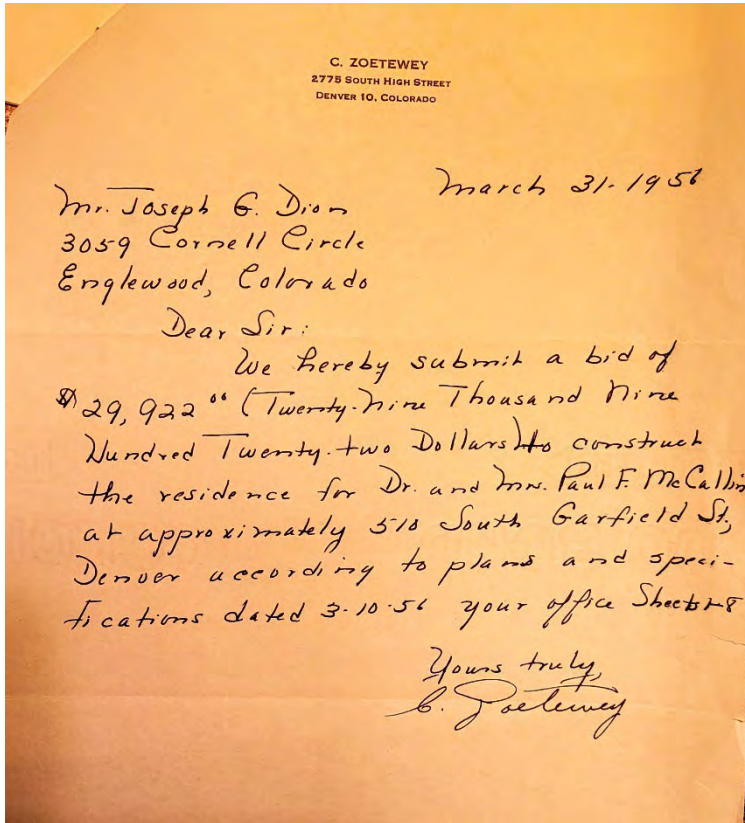 C. ZOETEWEY
2775 SOUTH HIGH STREET
DENVER 10, COLORADO
March 31-1956
Mr. Joseph G. Dion
3059 Cornell Circle
Englewood, Colorado
Dear Sir:
We hereby submit a bid of
$29,922.00 (Twenty-nine Thousand Nine
Hundred Twenty-two Dollars) to construct
the residence for Dr. and Mrs. Paul F. McCallin
at approximately 510 South Garfield St,
Denver according to plans and speci-
fications dated 3-10-56 your office Sheets 1-8
Yours truly,
C. Zoetewey